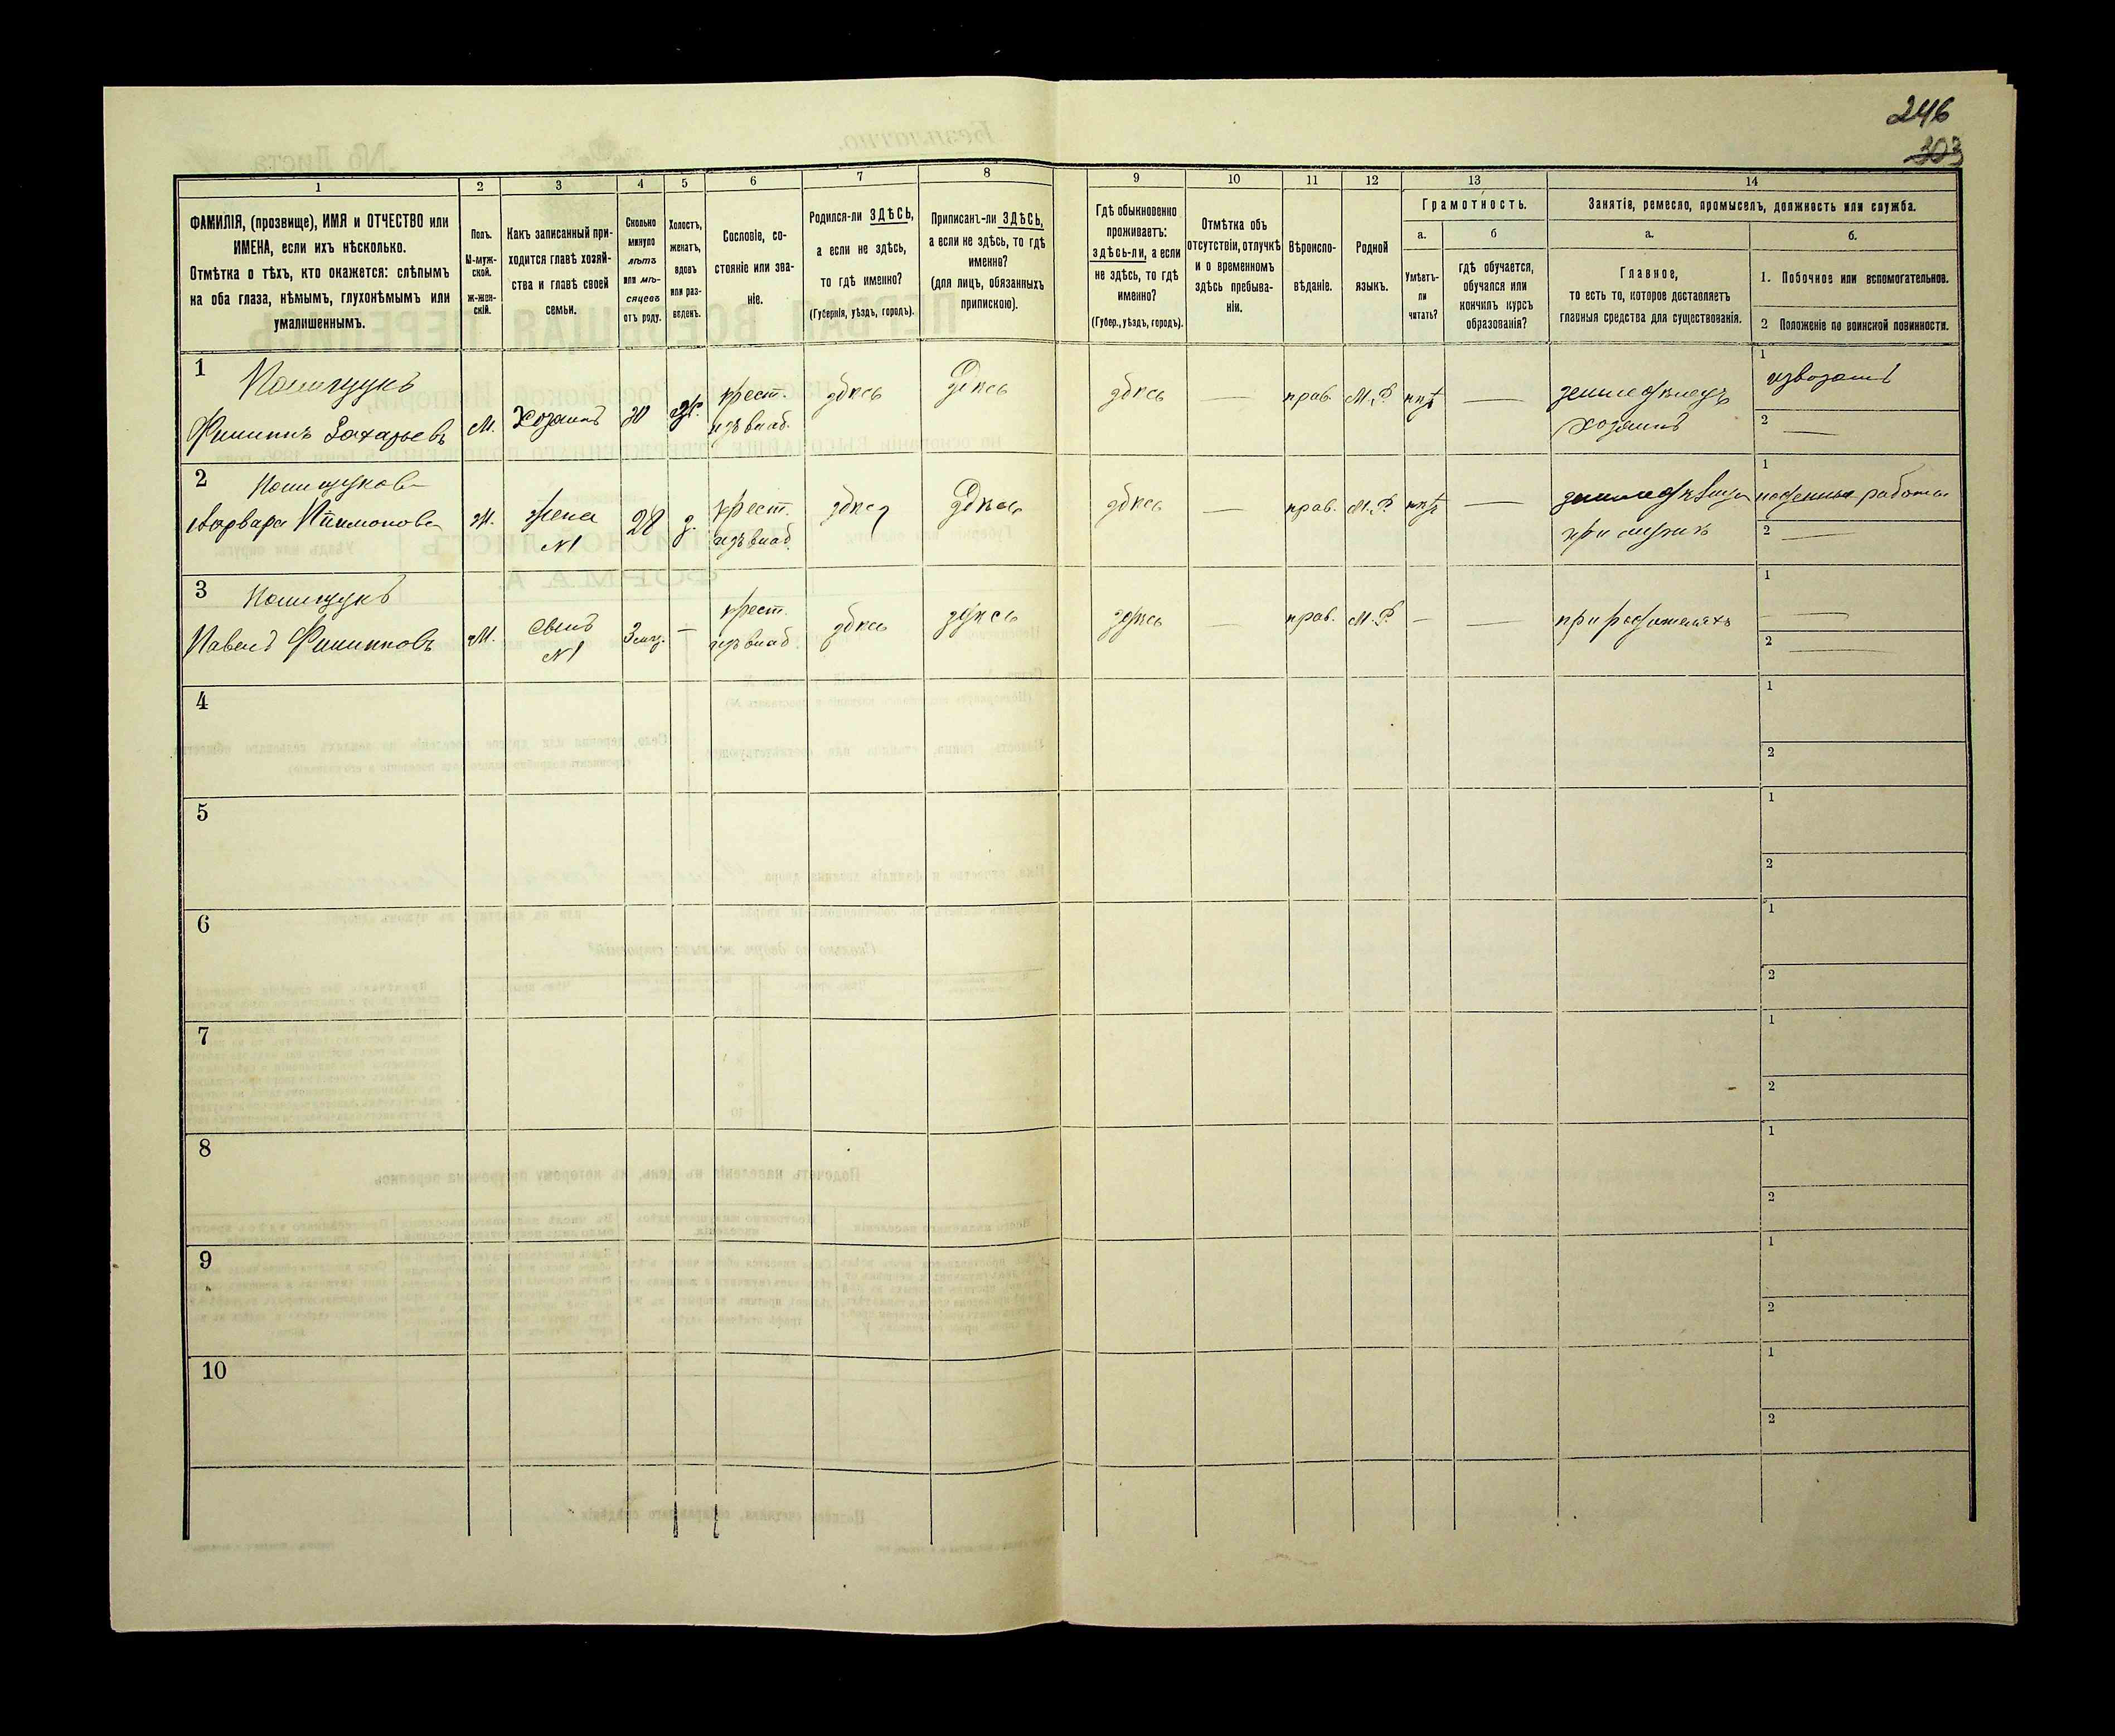 246
303
1
2
3
4
5
6
7
8
9
10
11
12
13
14
ФАМИЛІЯ, (прозвище), ИМЯ и ОТЧЕСТВО или
ИМЕНА, если ихъ нѣсколько.
Отмѣтка о тѣхъ, кто окажется: слѣпымъ
на оба глаза, нѣмымъ, глухонѣмымъ или
умалишеннымъ.
Полъ.
М-муж-
ской.
ж-жен-
скій.
Какъ записанный при-
ходится главѣ хозяй-
ства и главѣ своей
семьи.
Сколько
минуло
лѣтъ
или мѣ-
сяцевъ
отъ роду.
Холостъ,
женатъ,
вдовъ
или раз-
веденъ.
Сословіе, со-
стояніе или зва-
ніе.
Родился-ли ЗДѢСЬ,
а если не здѣсь,
то гдѣ именно?
(Губернія, уѣздъ, городъ).
Приписанъ-ли ЗДѢСЬ,
а если не здѣсь, то гдѣ
именно?
(для лицъ, обязанныхъ
припискою).
Гдѣ обыкновенно
проживаетъ:
здѣсь-ли, а если
не здѣсь, то гдѣ
именно?
(Губер., уѣздъ, городъ).
Отмѣтка объ
отсутствіи, отлучкѣ
и о временномъ
здѣсь пребыва-
ніи.
Вѣроиспо-
вѣданіе.
Родной
языкъ.
Грамотность.
а.
Умѣетъ-
ли
читать?
б
гдѣ обучается,
обучался или
кончилъ курсъ
образованія?
Занятіе, ремесло, промыселъ, должность или служба.
а.
Главное,
то есть то, которое доставляетъ
главныя средства для существованія.
б.
1. Побочное или вспомогательное.
2 Положеніе по воинской повинности.
1
Полищукъ
Филиппъ Захарьевъ
М.
Хозяинъ
30
Ж.
крест.
изъ влад.
здѣсь
здѣсь
здѣсь
—
прав.
М.Р.
нѣтъ
—
земледѣлецъ
хозяинъ
1
извозомъ
2 —
2
Полищукова
Варвара
Ж.
жена
№1
28
з.
крест.
изъ влад.
здѣсь
здѣсь
здѣсь
—
прав.
М.Р.
нѣтъ
—
при мужѣ
1
поденные работы
2 —
3
Полищукъ
Павелъ Филипповъ
М.
сынъ
№1
3 мѣс.
—
крест.
изъ влад.
здѣсь
здѣсь
здѣсь
—
прав.
М.Р.
—
—
при родителяхъ
1
—
2
—
4
1
2
5
1
2
6
1
2
7
1
2
8
1
2
9
1
2
10
1
2